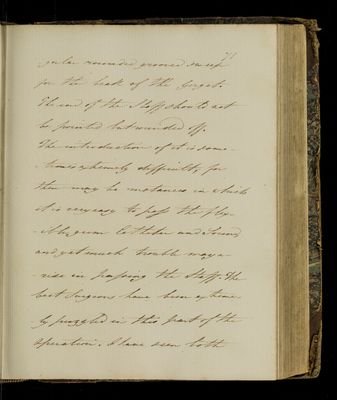 71
gular rounded groove in use
for the beak of the gorget.
The end of the Staff should not
be pointed but rounded off.
The introduction of it is some-
-times extremely difficult, for
there may be instances in which
it is very easy to pass the flex-
-ible gum Catheter and Sound
and yet much trouble may a-
-rise in passing the Staff. The
best Surgeons have been extreme-
-ly puzzled in this part of the
operation. I have seen both